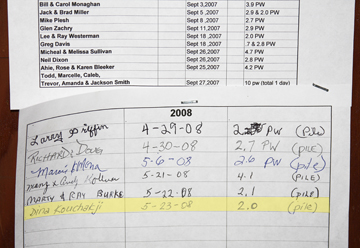 Bill & Carol Monaghan Sept 3,2007 3.9 PW
Jack & Brad Miller Sept 5,2007 2.9 & 2.0 PW
Mike Plesh Sept 8,2007 2.7 PW
Glen Zachry Sept 11,2007 2.9 PW
Lee & Ray Westerman Sept 18 ,2007 2.0 PW
Greg Davis Sept 18,2007 .7 & 2.8 PW
Micheal & Melissa Sullivan Sept 26,2007 4.7 PW
Neil Dixon Sept 26,2007 2.8 PW
Abie, Rose & Karen Bleeker Sept 25,2007 4.2 PW
Todd, Marcelle, Caleb,
Trevor, Amanda & Jackson Smith Sept 27,2007 10 pw (total 1 day)
2008
Larry Griffin 4-29-08 PW (PW)
RICHARD 4-30-08 2.7 PW (PILE)
5-6-08 2.6 PW (pile)
5-21-08 4.1 (PILE)
MARTY & RAY BURKE 5-22-08 2.1 (PILE)
Dina Kouchakji 5-23-08 2.0 (pile)